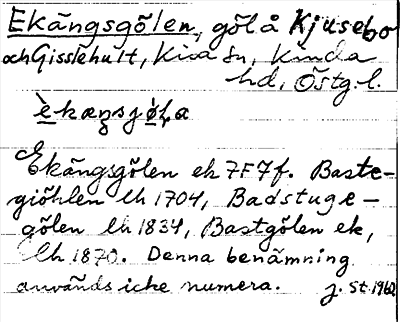 Ekängsgölen, göl å Kjusebo
och Gisslehult, Kisa sn, Kinda
hd, Östg. l.
Ekängsgölen ek 7F7f. Baste-
giöhlen lh 1704, Badstuge-
gölen lh 1834, Bastgölen ek,
lh 1870. Denna benämning
används icke numera. J. St. 1962